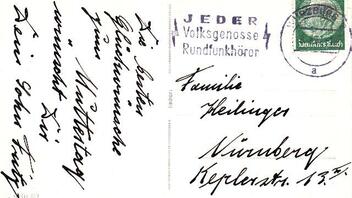 Die besten
Glückwünsche
zum Muttertag
wünscht Dir
Dein Sohn Fritz
JEDER
Volksgenosse
Rundfunkhörer
a
Familie
Heilinger
Nürnberg
Keplerstr. 13